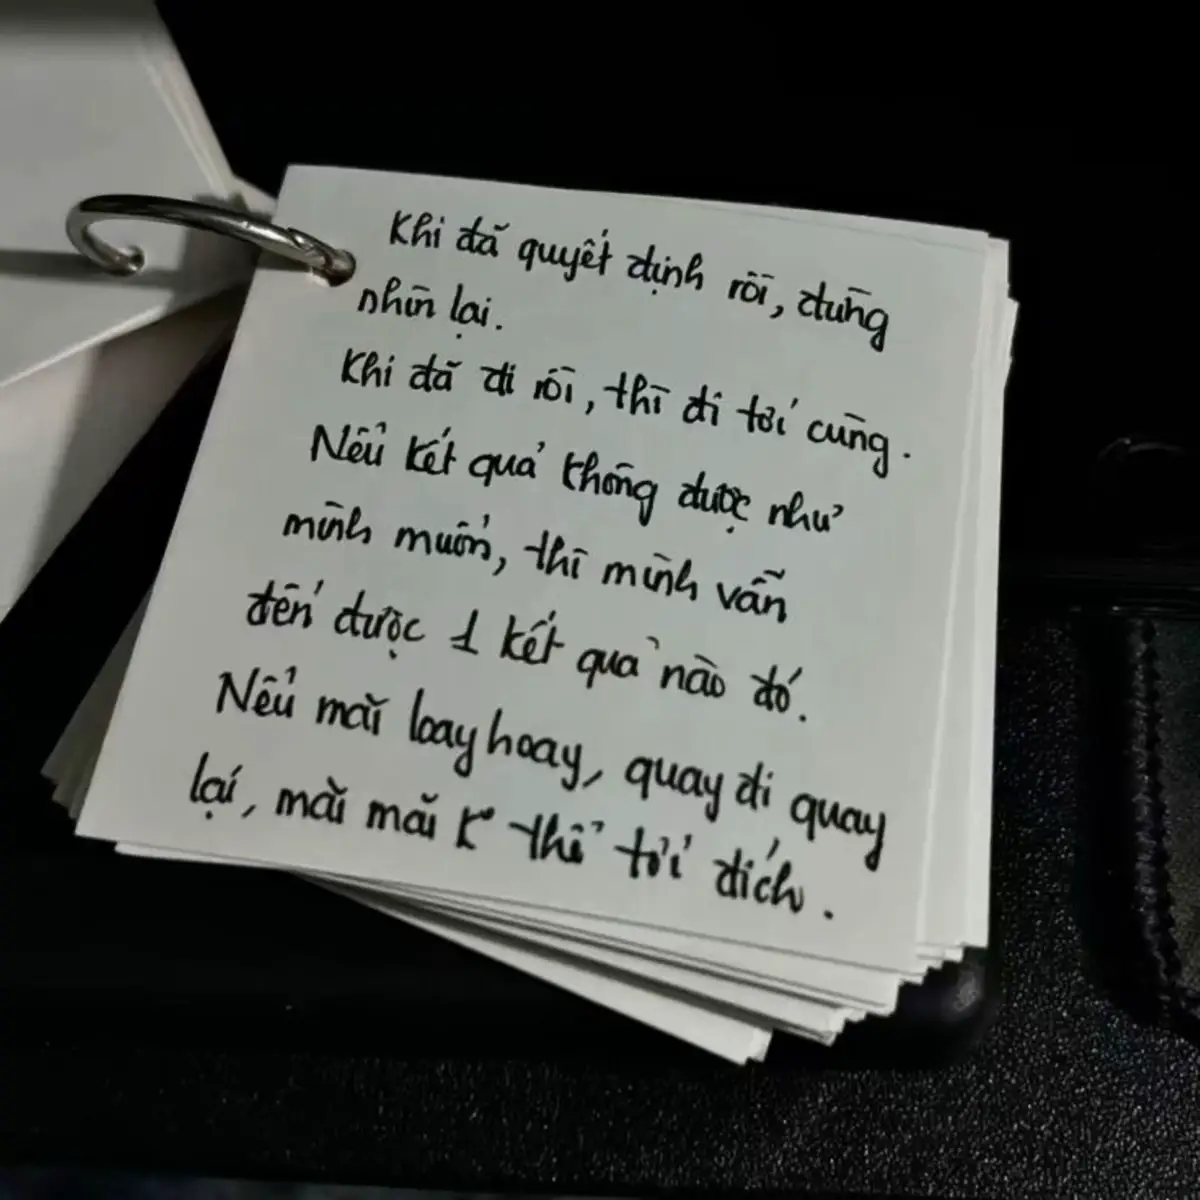 Khi đã quyết định rồi, đừng
nhìn lại.
Khi đã đi rồi, thì đi tới cùng.
Nếu kết quả không được như
mình muốn, thì mình vẫn
đến được 1 kết quả nào đó.
Nếu mãi loay hoay, quay đi quay
lại, mãi mãi k thể tới đích.